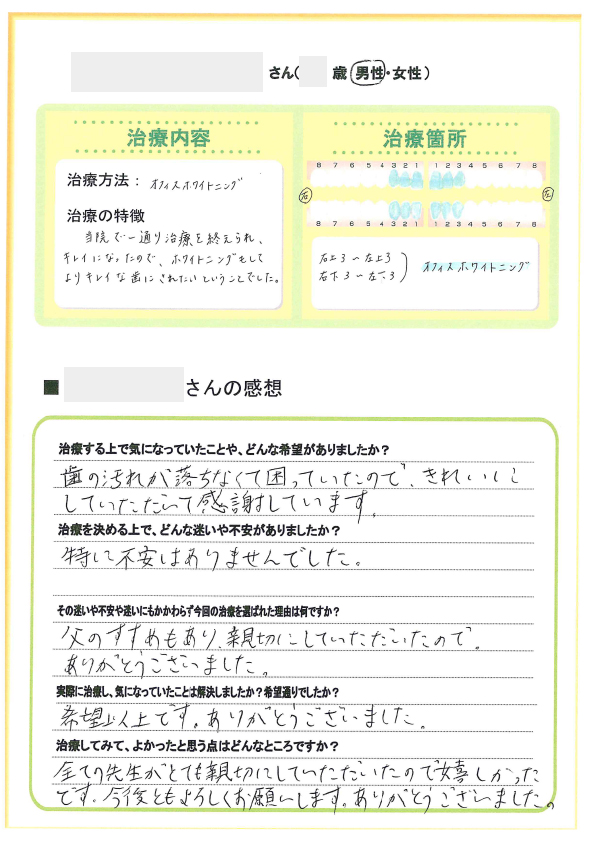 さん( 歳 男性・女性)
治療内容
治療方法： オフィスホワイトニング
治療の特徴
当院で一通り治療を終えられ、
キレイになったので、ホワイトニングもして
よりキレイな歯にされたいということでした。
治療箇所
8 7 6 5 4 3 2 1 1 2 3 4 5 6 7 8
右 左
8 7 6 5 4 3 2 1 1 2 3 4 5 6 7 8
右上3～左上3
右下3～左下3
オフィスホワイトニング
■ さんの感想
治療する上で気になっていたことや、どんな希望がありましたか？
歯の汚れが落ちなくて困っていたので、きれいに
していただいて感謝しています。
治療を決める上で、どんな迷いや不安がありましたか？
特に不安はありませんでした。
その迷いや不安や迷いにもかかわらず今回の治療を選ばれた理由は何ですか？
父のすすめもあり、親切にしていただいたので。
ありがとうございました。
実際に治療し、気になっていたことは解決しましたか？希望通りでしたか？
希望以上です。ありがとうございました。
治療してみて、よかったと思う点はどんなところですか？
全ての先生がとても親切にしていただいたので嬉しかった
です。今後ともよろしくお願いします。ありがとうございました。